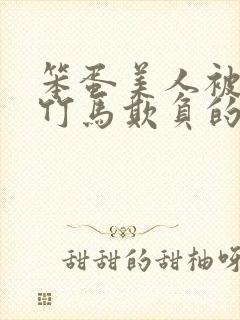 笨蛋美人被
竹馬欺負的
甜甜的甜柚呀